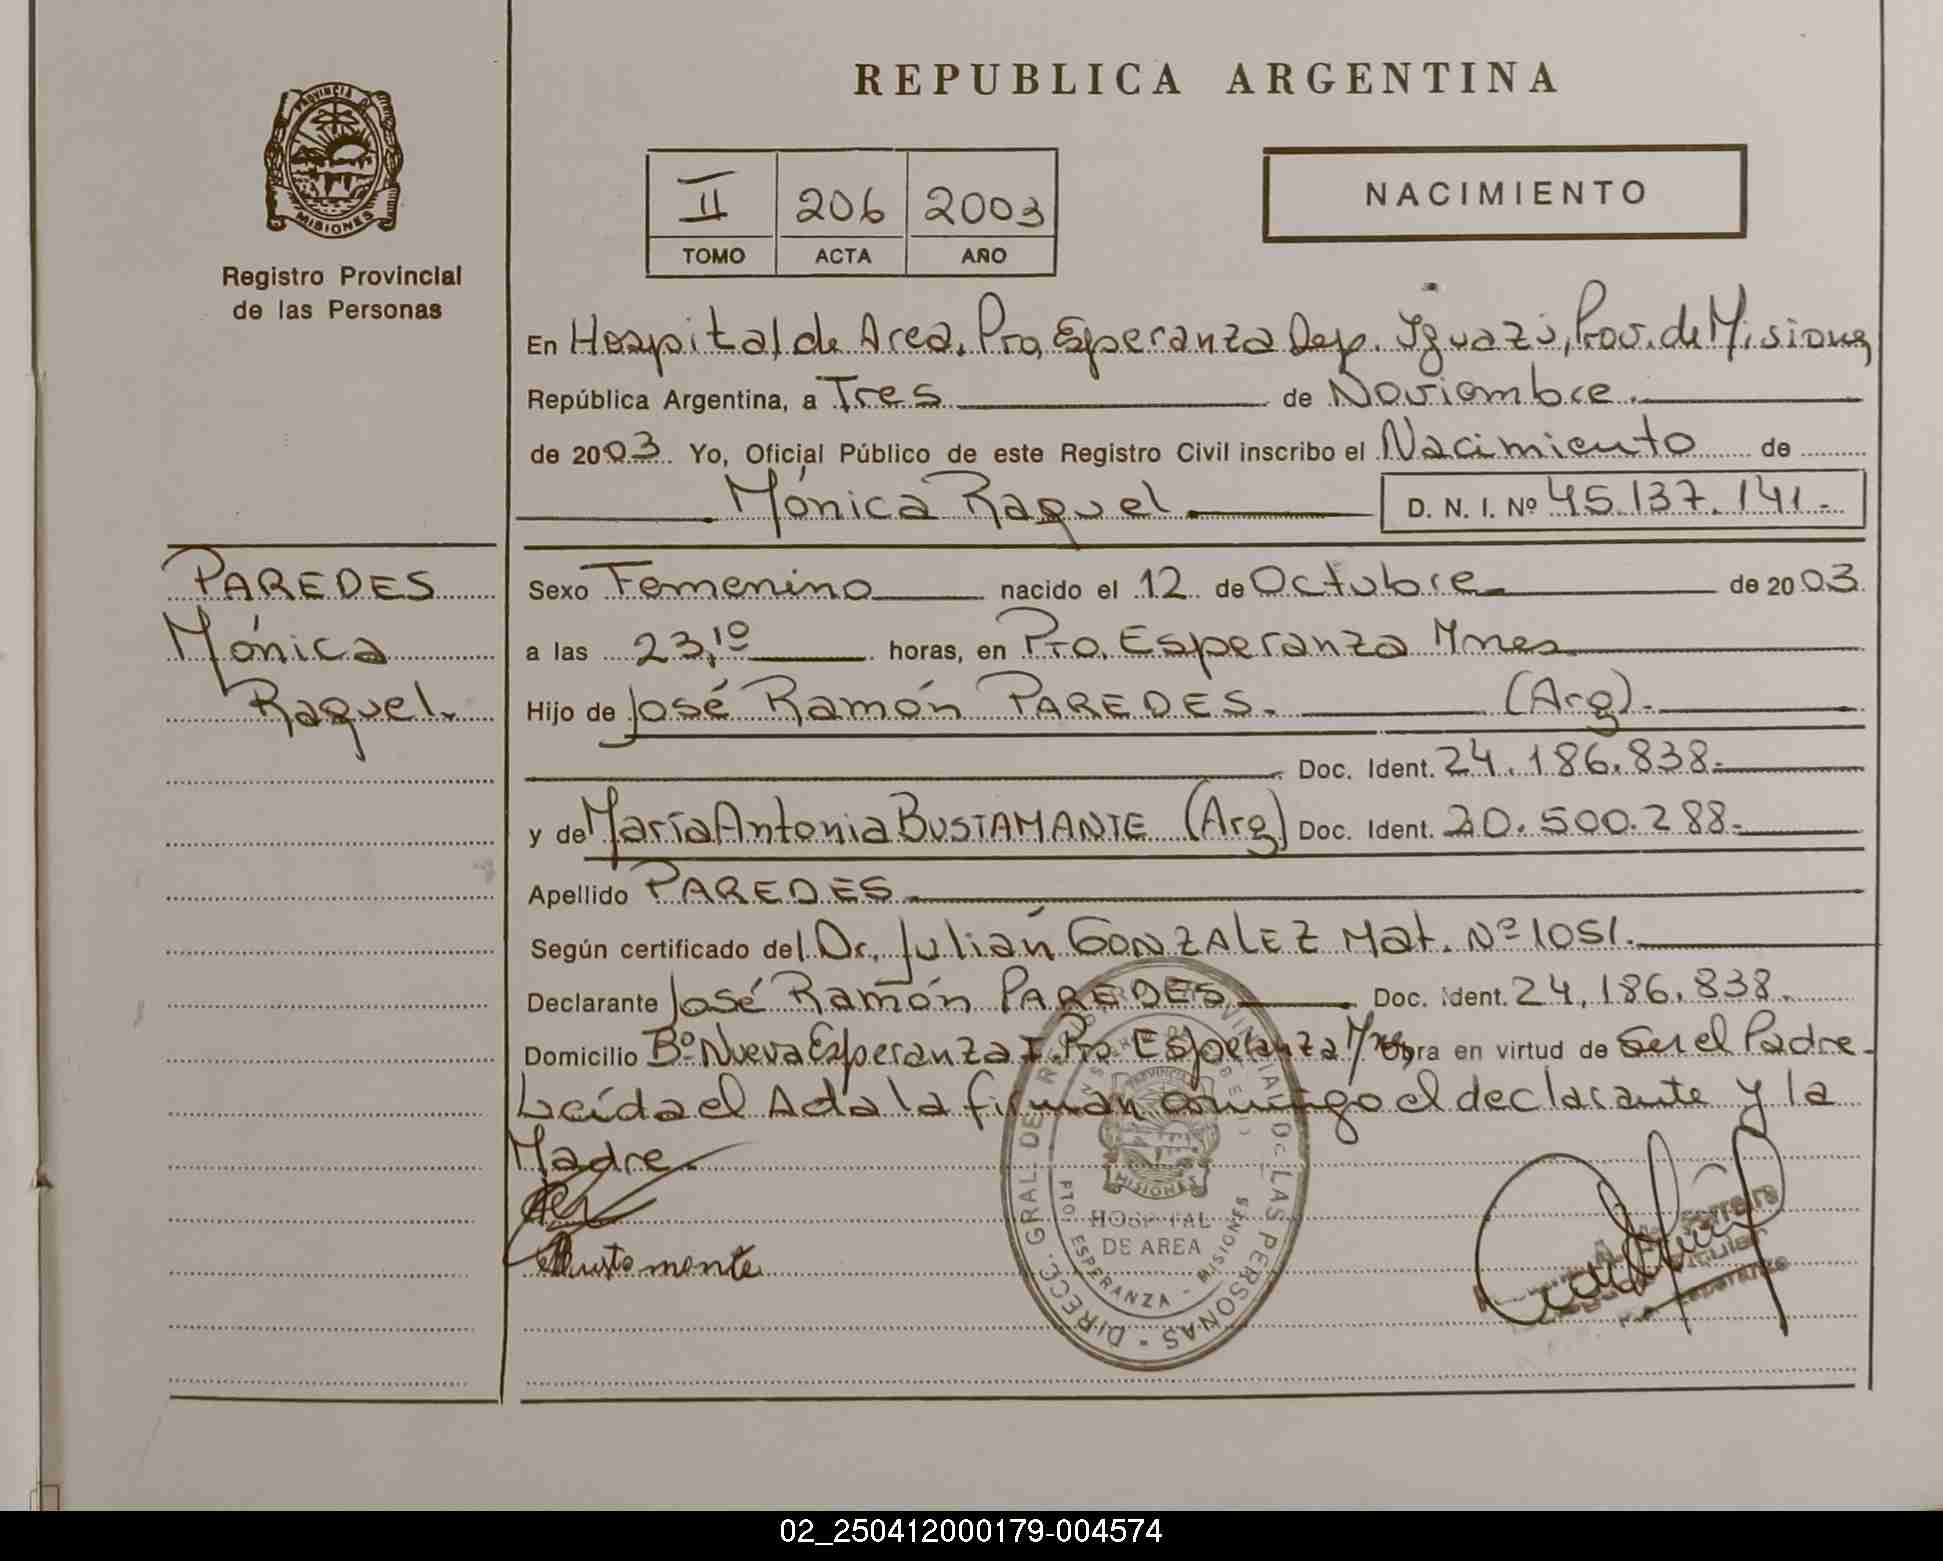 REPUBLICA ARGENTINA
PROVINCIA DE
MISIONES
Registro Provincial
de las Personas
II 206 2003
TOMO ACTA AÑO
NACIMIENTO
En Hospital de Area, Pto. Esperanza Dep. Iguazú, Prov. de Misiones
República Argentina, a Tres de Noviembre.
de 2003. Yo, Oficial Público de este Registro Civil inscribo el Nacimiento de
Mónica Raquel D. N. I. Nº 45.137.141.-
PAREDES
Mónica
Raquel.
Sexo Femenino nacido el 12 de Octubre de 2003
a las 23,10 horas, en Pto. Esperanza Mnes
Hijo de José Ramón PAREDES. (Arg).
Doc. Ident. 24.186.838.-
y de María Antonia BUSTAMANTE (Arg) Doc. Ident. 20.500.288.-
Apellido PAREDES
Según certificado del Dr. Julián GONZALEZ Mat. Nº 1051.
Declarante José Ramón PAREDES Doc. Ident. 24.186.838.
Domicilio Bº Nueva Esperanza I. Pto. Esperanza Mnes, Obra en virtud de Ser el Padre.
Leída el Acta la firman conmigo el declarante y la
Madre.
Bustamante
DIRECC. GRAL. DE REGISTRO PROVINCIAL DE LAS PERSONAS
PROVINCIA
MISIONES
HOSPITAL
DE AREA
PTO. ESPERANZA - MISIONES
02_250412000179-004574